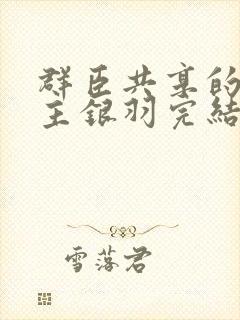 群臣共享的
主银羽完結
雪落君